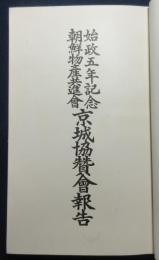 始政五年記念
朝鮮物産共進會
京城協贊會報告